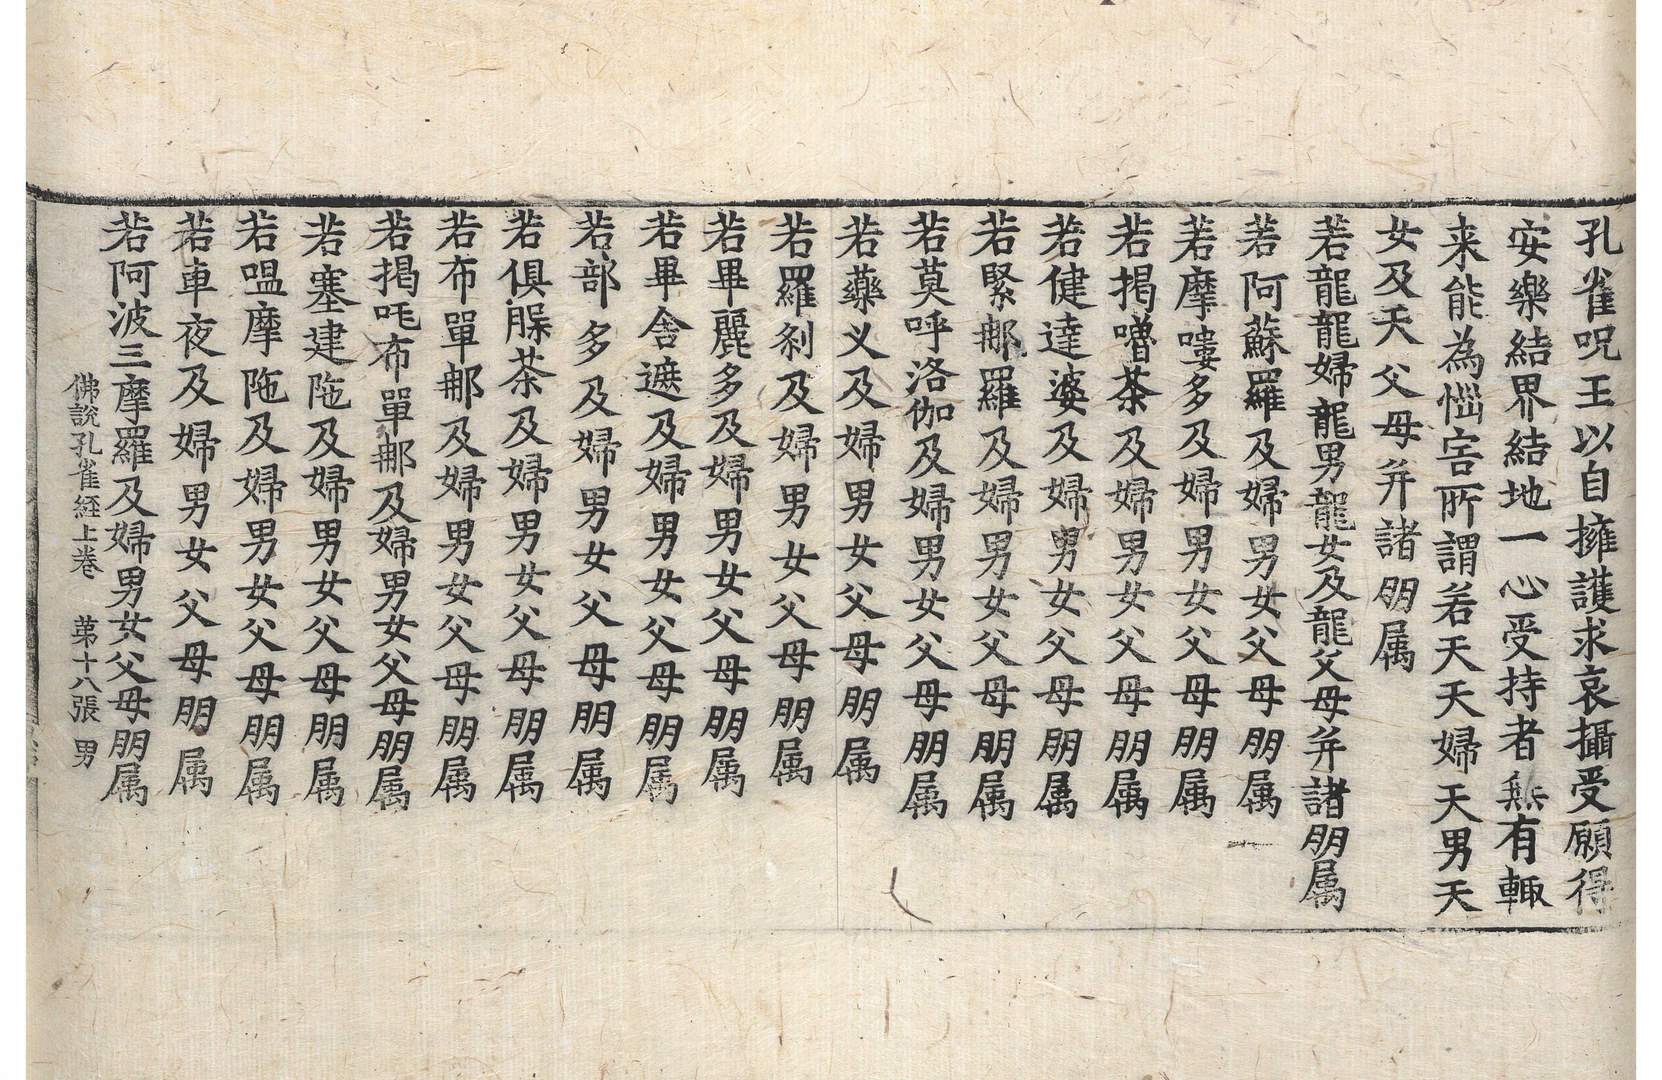 孔雀呪王以自擁護求哀攝受願得
安樂結界結地一心受持者無有輙
来能為惱害所謂若天天婦天男天
女及天父母并諸朋属
若龍龍婦龍男龍女及龍父母并諸朋属
若阿蘇羅及婦男女父母朋属
若摩嘍多及婦男女父母朋属
若揭嚕茶及婦男女父母朋属
若健達婆及婦男女父母朋属
若緊那羅及婦男女父母朋属
若莫呼洛伽及婦男女父母朋属
若藥义及婦男女父母朋属
若羅剎及婦男女父母朋属
若畢麗多及婦男女父母朋属
若畢舍遮及婦男女父母朋属
若部多及婦男女父母朋属
若俱脲茶及婦男女父母朋属
若布單那及婦男女父母朋属
若揭吒布單那及婦男女父母朋属
若塞建陁及婦男女父母朋属
若嗢摩陁及婦男女父母朋属
若車夜及婦男女父母朋属
若阿波三摩羅及婦男女父母朋属
佛說孔雀経上卷 第十八張 男